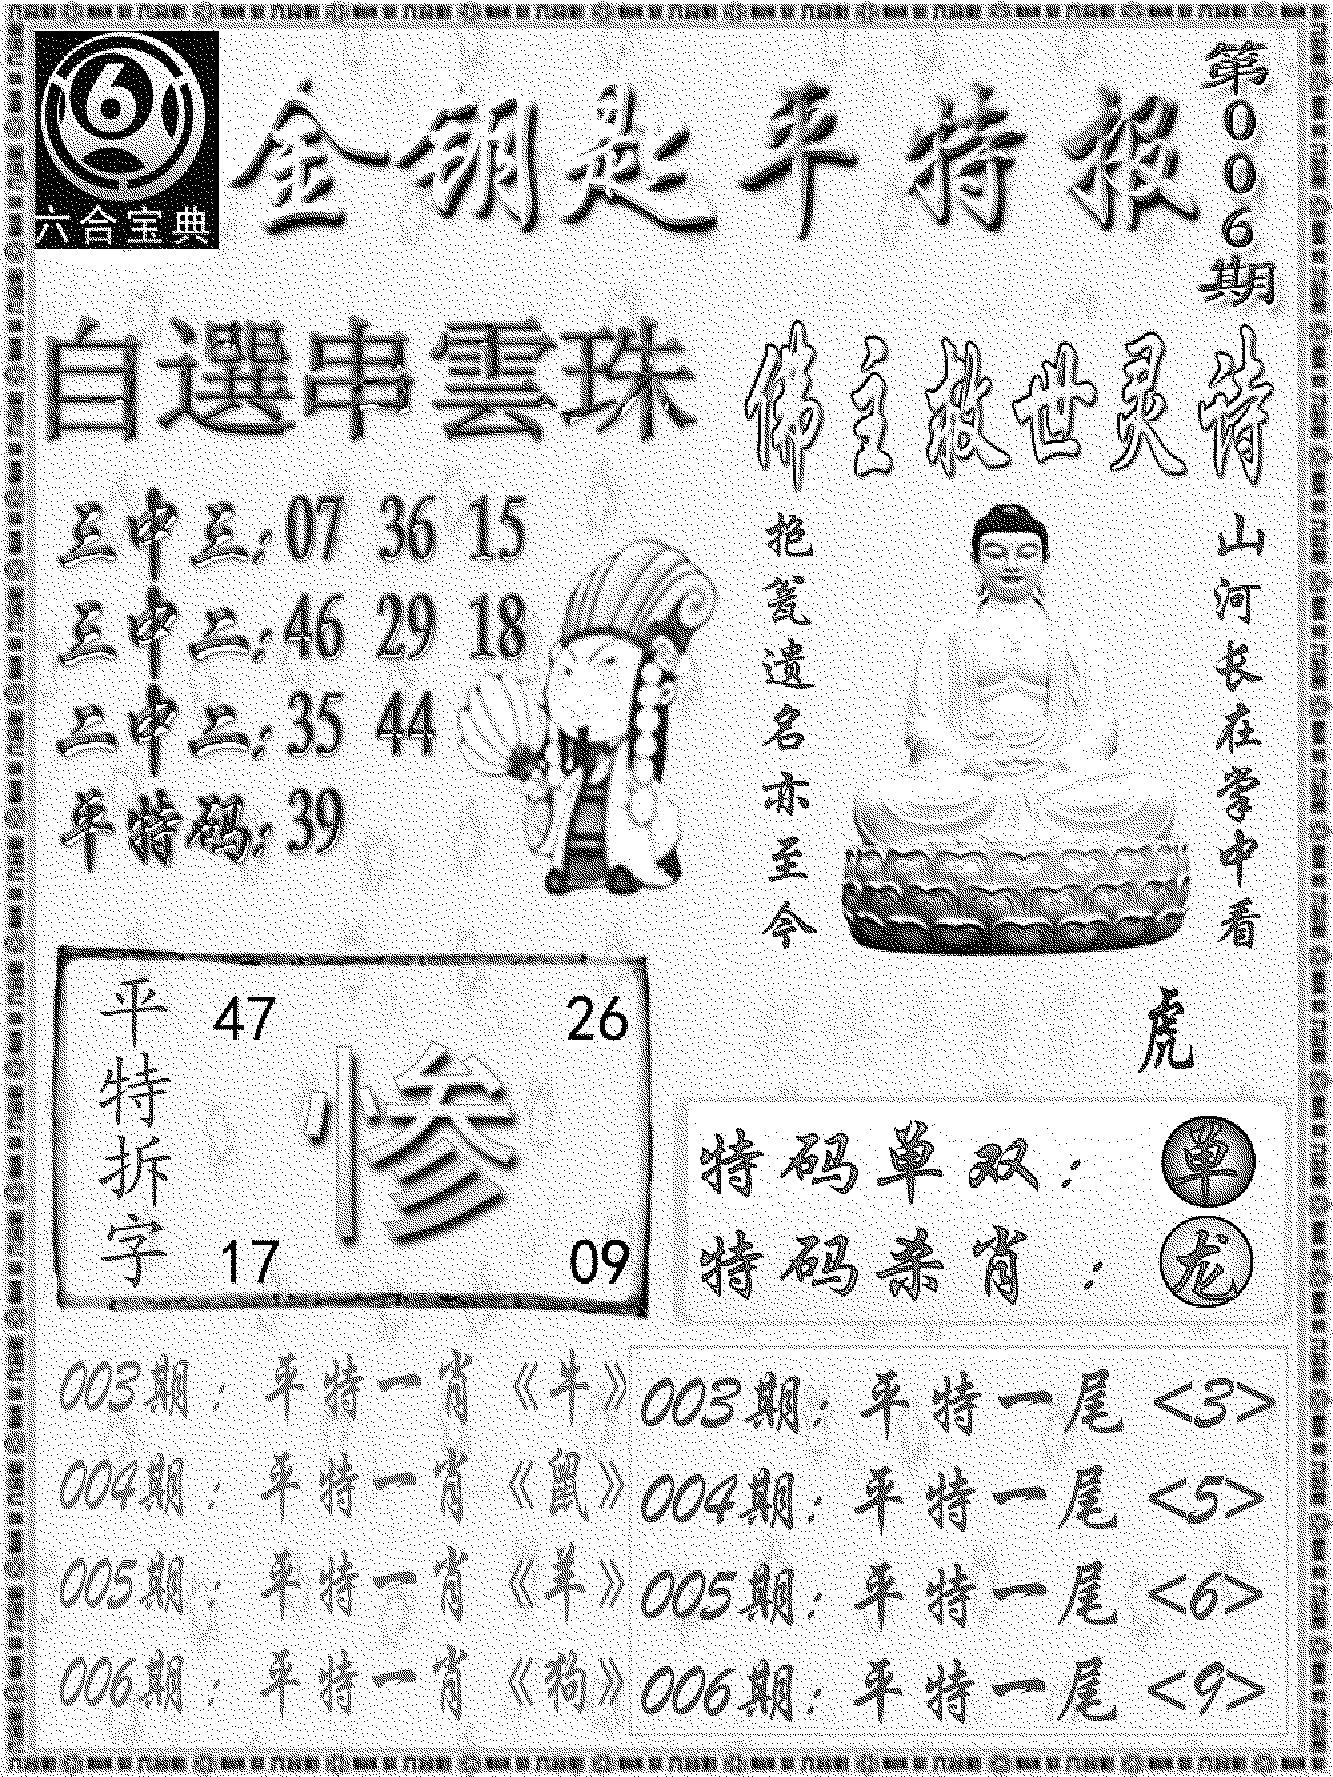 6
六合宝典
金钥匙平特报
第006期
自選串雲珠
三中三:07 36 15
三中二:46 29 18
二中二:35 44
平特码:39
佛主救世灵诗
山河长在掌中看
抱瓮遗名亦至今
虎
平特拆字
47 26
惨
17 09
特码单双:单
特码杀肖:龙
003期:平特一肖《牛》
004期:平特一肖《鼠》
005期:平特一肖《羊》
006期:平特一肖《狗》
003期:平特一尾<3>
004期:平特一尾<5>
005期:平特一尾<6>
006期:平特一尾<9>